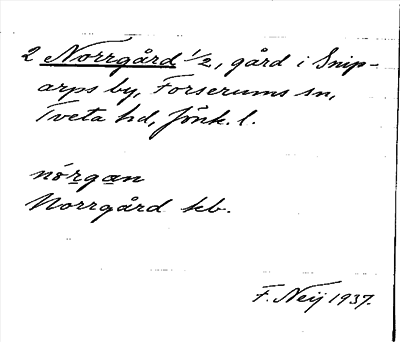 2 Norrgård 1/2, gård i Snip-
arps by, Forserums sn,
Tveta hd, Jönk. l.
nórgan
Norrgård kb.
F. Neij 1937.